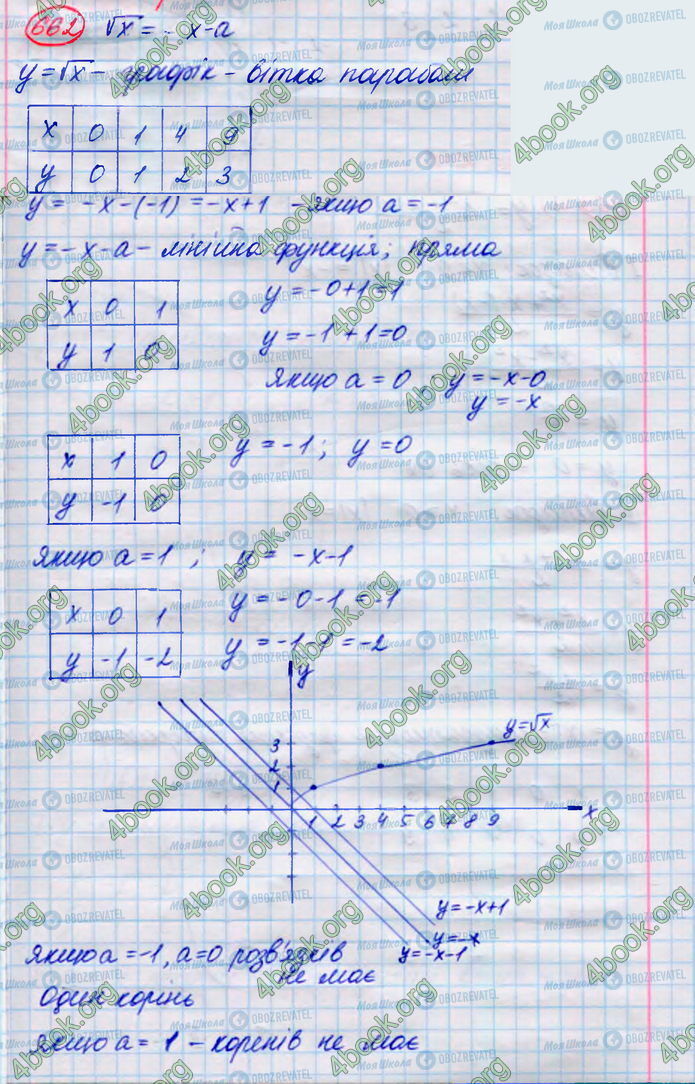 662 √x = - x-a
y=√x - графік - вітка параболи
x 0 1 4 9
y 0 1 2 3
y = -x-(-1) = -x+1 - якщо a = -1
y = -x-a - лінійна функція, пряма
x 0 1
y 1 0
y = -0+1=1
y = -1+1=0
якщо a = 0 y = -x-0
y = -x
x 1 0
y -1 0
y = -1; y=0
якщо a = 1; y = -x-1
x 0 1
y -1 -2
y = -0-1 = -1
y = -1-1 = -2
y
y=√x
3
2
1
1 2 3 4 5 6 7 8 9 x
y = -x+1
y = -x
y = -x-1
якщо a = -1, a=0 розв'язків
не має
Один корінь
якщо a = 1 - коренів не має